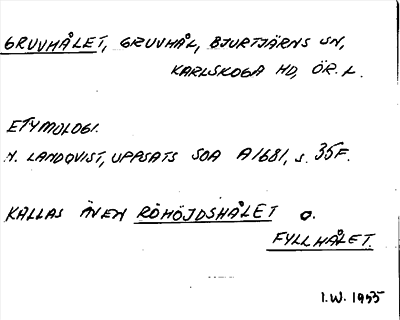 GRUVHÅLET, GRUVHÅL, BJURTJÄRNS SN,
KARLSKOGA HD, ÖR. L.
ETYMOLOGI.
N. LANDQVIST, UPPSATS SOA A1681, s. 35F.
KALLAS ÄVEN RÖHÖJDSHÅLET O.
FYLLHÅLET.
I.W. 1955